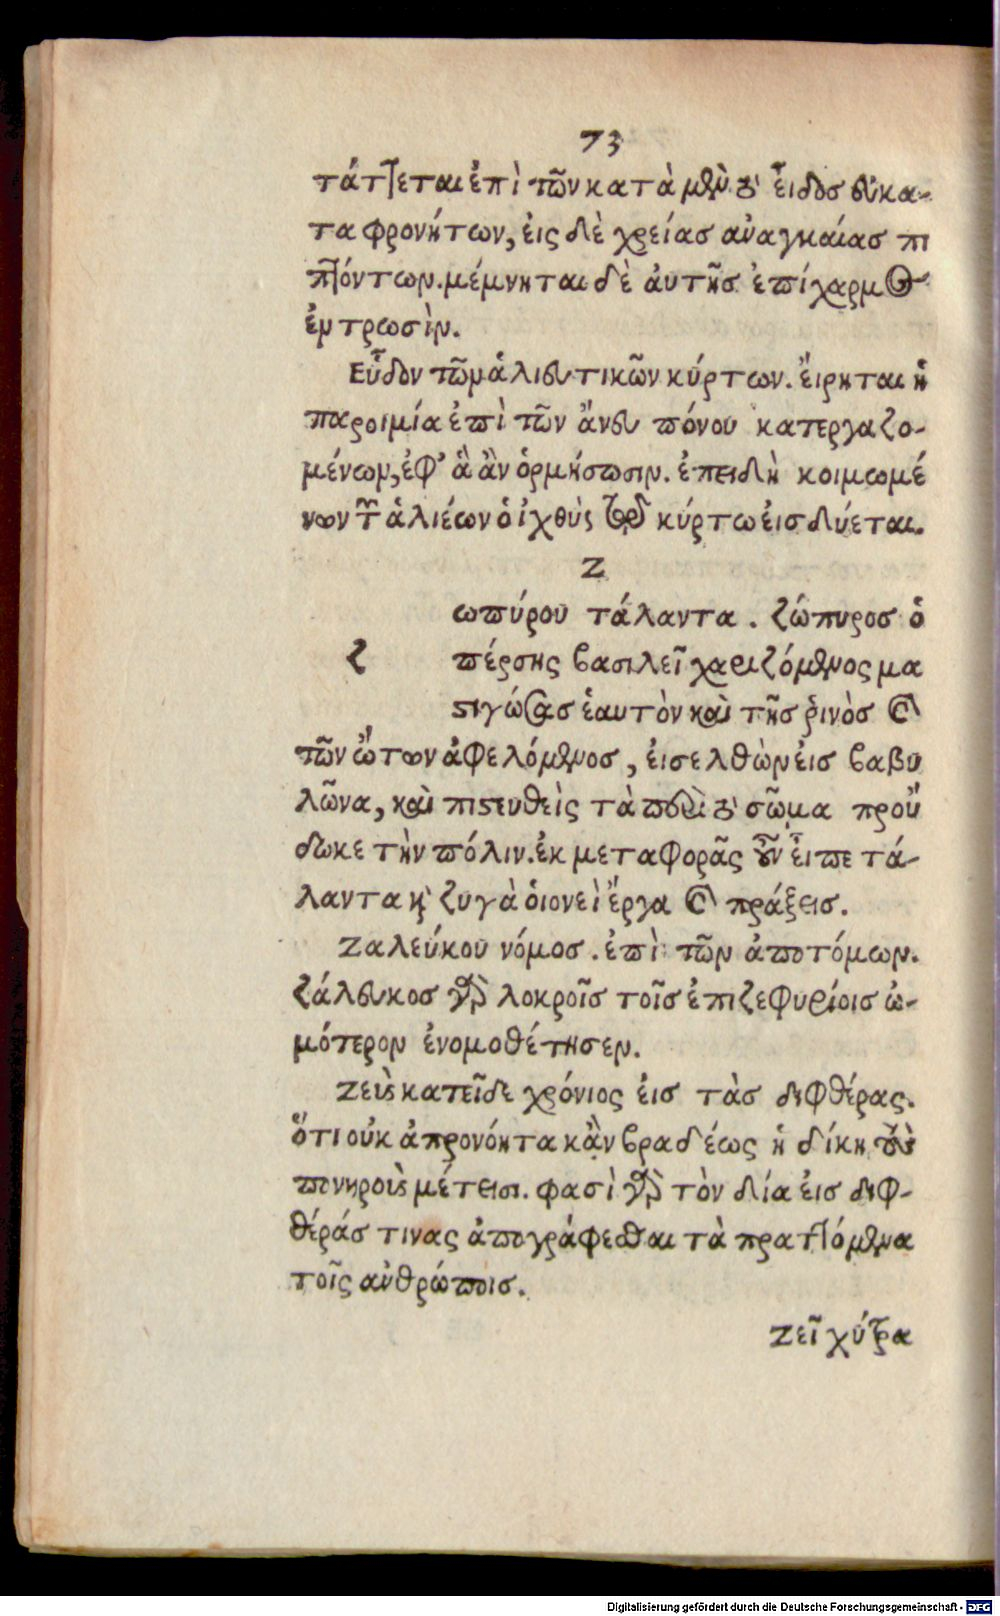 73
τάττεται ἐπὶ τῶν κατὰ μὲν τὸ εἶδος εὐκα-
ταφρονήτων, εἰς δὲ χρείας ἀναγκαίας πι
πτόντων. μέμνηται δὲ αὐτῆς ἐπίχαρμος
ἐν τρωσὶν.
Εὗδον τῶν ἁλιευτικῶν κύρτων. εἴρηται ἡ
παροιμία ἐπὶ τῶν ἄνευ πόνου κατεργαζο-
μένων, ἐφ' ἃ ἂν ὁρμήσωσιν. ἐπειδὴ κοιμωμέ
νων τῶν ἁλιέων ὁ ἰχθὺς τῷ κύρτω εἰσδύεται.
Ζ
ωπύρου τάλαντα. ζώπυρος ὁ
ζ πέρσης βασιλεῖ χαριζόμενος μα
στιγώσας ἑαυτὸν καὶ τῆς ῥινὸς καὶ
τῶν ὤτων ἀφελόμενος, εἰσελθὼν εἰς βαβυ
λῶνα, καὶ πιστευθεὶς τὰ περὶ τὸ σῶμα προὔ
δωκε τὴν πόλιν. ἐκ μεταφορᾶς οὖν εἶπε τά-
λαντα καὶ ζυγὰ οἱονεὶ ἔργα καὶ πράξεις.
Ζαλεύκου νόμος. ἐπὶ τῶν ἀποτόμων.
ζάλευκος γὰρ λοκροῖς τοῖς ἐπιζεφυρίοις ὠ-
μότερον ἐνομοθέτησεν.
Ζεὺς κατεῖδε χρόνιος εἰς τὰς διφθέρας.
ὅτι οὐκ ἀπρονόητα κἂν βραδέως ἡ δίκη τοὺς
πονηροὺς μέτεισι. φασὶ γὰρ τὸν δία εἰς διφ-
θέράς τινας ἀπογράφεσθαι τὰ πραττόμενα
τοῖς ἀνθρώποις.
Ζεῖ χύτρα
Digitalisierung gefördert durch die Deutsche Forschungsgemeinschaft - DFG